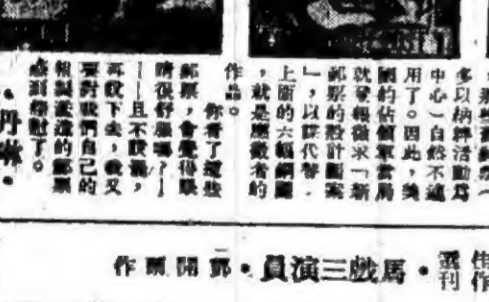 多以納粹活動爲
中心）自然不適
用了。因此，美
國的佔領軍當局
就發起徵求「新
郵票的設計圖案
」，以謀代替．
上面的六幅圖
，就是應徵者的
作品。
你看了這些
郵票，會覺得眼
睛很舒服嗎？—
—且不說罷，
再說下去，我又
要對我們自己的
的郵票
感到慚愧了。
•丹林•
佳作
選刊
•馬戲三演員•
作